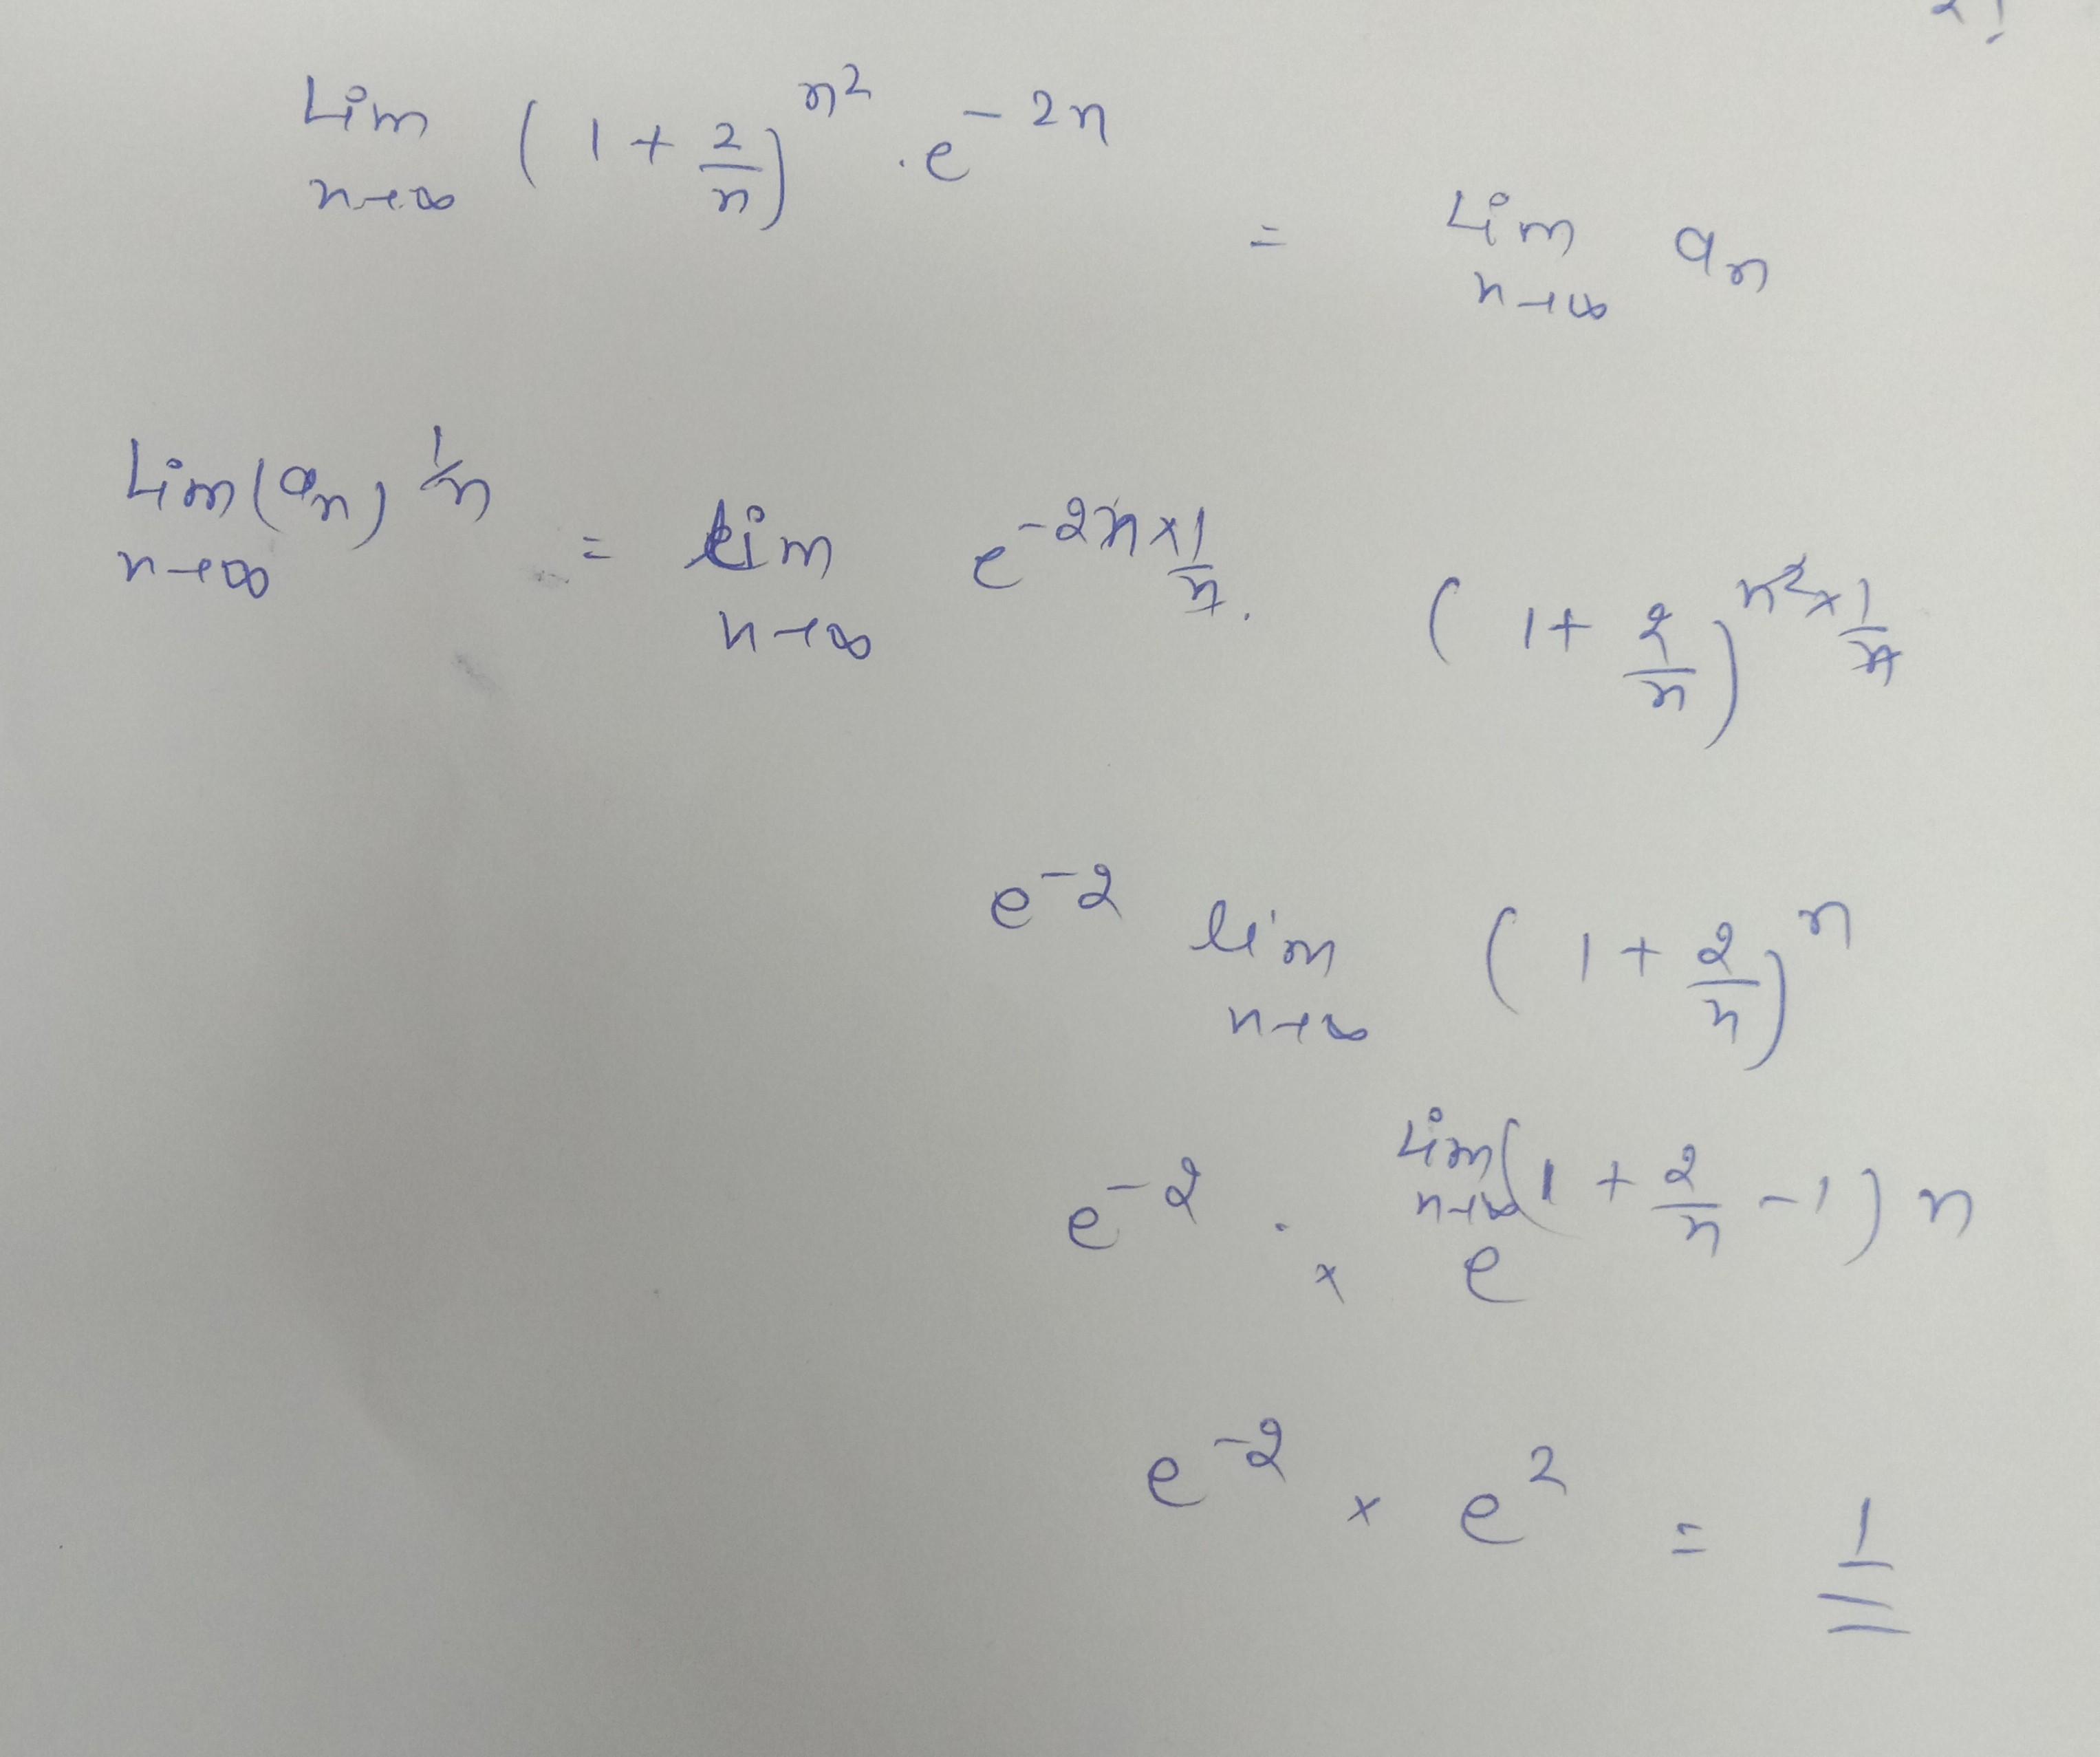 2!
Lim n→∞ (1 + 2/n)^n² . e^-2n = Lim n→∞ an
Lim n→∞ (an)^1/n = lim n→∞ e^-2n×1/n . (1 + 2/n)^n²×1/n
e^-2 lim n→∞ (1 + 2/n)^n
e^-2 . × e^Lim n→∞ (1 + 2/n - 1) n
e^-2 × e^2 = 1